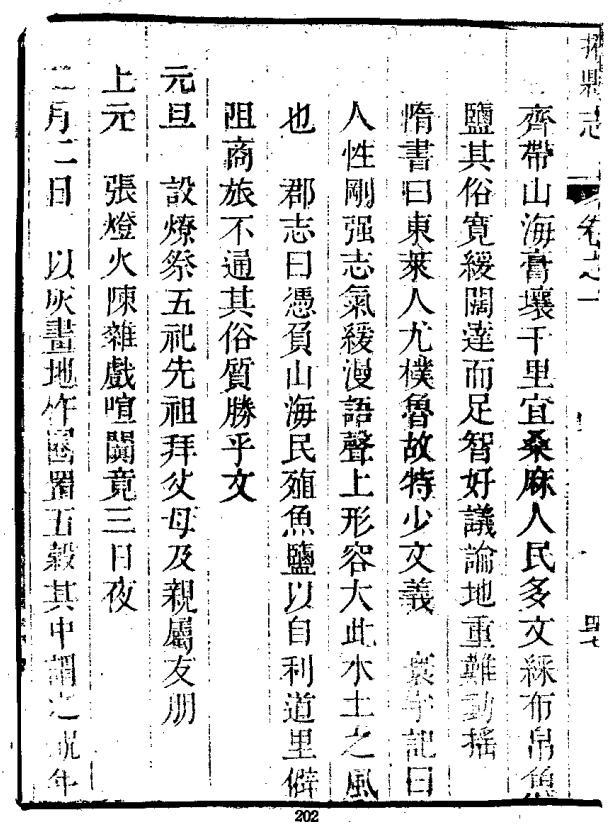 志 卷之一
齊帶山海膏壤千里宜桑麻人民多文綵布帛魚
鹽其俗寛緩闊達而足智好議論地重難動搖
惰書曰東萊人尤樸魯故特少文義 寰宇記曰
人性剛强志氣緩漫語聲上形容大此水土之風
也 郡志曰憑負山海民殖魚鹽以自利道里僻
阻商旅不通其俗質勝乎文
元旦 設燎祭五祀先祖拜父母及親屬友朋
上元 張燈火陳雜戲喧闐竟三日夜
二月二日 以灰畫地作囷置五穀其中謂之
202